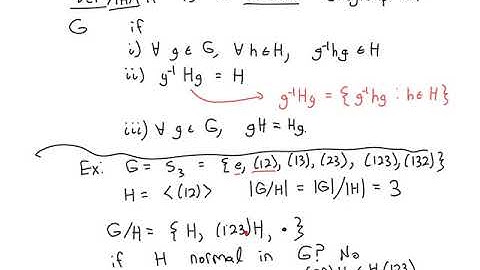 G if
i) ∀ g ∈ G, ∀ h ∈ H, g⁻¹hg ∈ H
ii) g⁻¹Hg = H
g⁻¹Hg = {g⁻¹hg : h ∈ H}
iii) ∀ g ∈ G, gH = Hg.
Ex: G = S₃ = {e, (12), (13), (23), (123), (132)}
H = <(12)> |G/H| = |G|/|H| = 3
G/H = {H, (123)H, · }
if H normal in G? No
H(123)